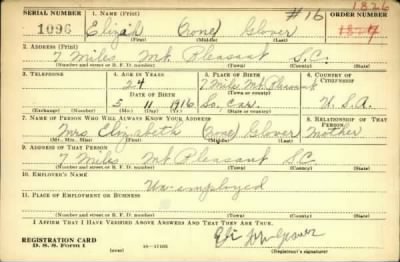 SERIAL NUMBER 1. NAME (Print) #16 ORDER NUMBER
1826
1096 Elizah (none) Glover 1827
(First) (Middle) (Last)
2. ADDRESS (Print)
7 Miles Mt. Pleasant S.C.
(Number and street or R. F. D. number) (Town) (County) (State)
3. TELEPHONE 4. AGE IN YEARS 5. PLACE OF BIRTH 6. COUNTRY OF CITIZENSHIP
24 7 Miles Mt. Pleasant
DATE OF BIRTH (Town or county)
5 11 1916 So. Car. U.S.A.
(Exchange) (Number) (Mo.) (Day) (Yr.) (State or country)
7. NAME OF PERSON WHO WILL ALWAYS KNOW YOUR ADDRESS 8. RELATIONSHIP OF THAT PERSON
Mrs Elizabeth (none) Glover Mother
(Mr., Mrs., Miss) (First) (Middle) (Last)
9. ADDRESS OF THAT PERSON
7 Miles Mt. Pleasant S.C.
(Number and street or R. F. D. number) (Town) (County) (State)
10. EMPLOYER'S NAME
Un-employed
11. PLACE OF EMPLOYMENT OR BUSINESS
(Number and street or R. F. D. number) (Town) (County) (State)
I AFFIRM THAT I HAVE VERIFIED ABOVE ANSWERS AND THAT THEY ARE TRUE.
REGISTRATION CARD
D. S. S. Form 1 (over) 16—17105 (Registrant's signature)